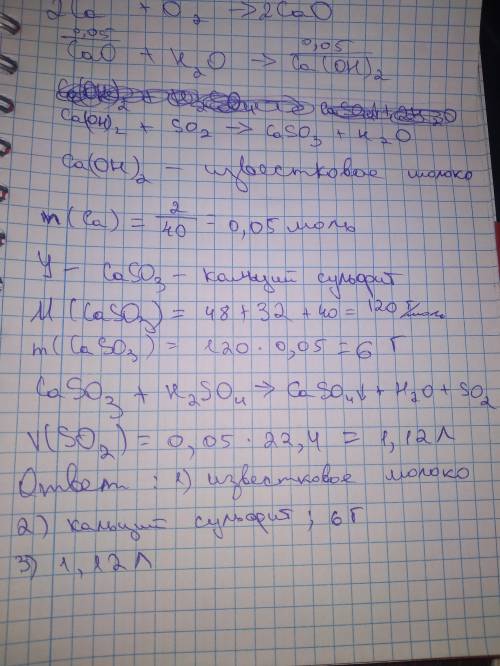 2Ca + O₂ → 2CaO
0,05 0,05
CaO + H₂O → Ca(OH)₂
Ca(OH)₂ + SO₂ → CaSO₃ + H₂O
Ca(OH)₂ – известковое молоко
m(Ca) = 2/40 = 0,05 моль
У – CaSO₃ – кальций сульфит
M(CaSO₃) = 48 + 32 + 40 = 120 г/моль
m(CaSO₃) = 120 · 0,05 = 6 г
CaSO₃ + H₂SO₄ → CaSO₄↓ + H₂O + SO₂
V(SO₂) = 0,05 · 22,4 = 1,12 л
Ответ: 1) известковое молоко
2) кальций сульфит; 6 г
3) 1,12 л